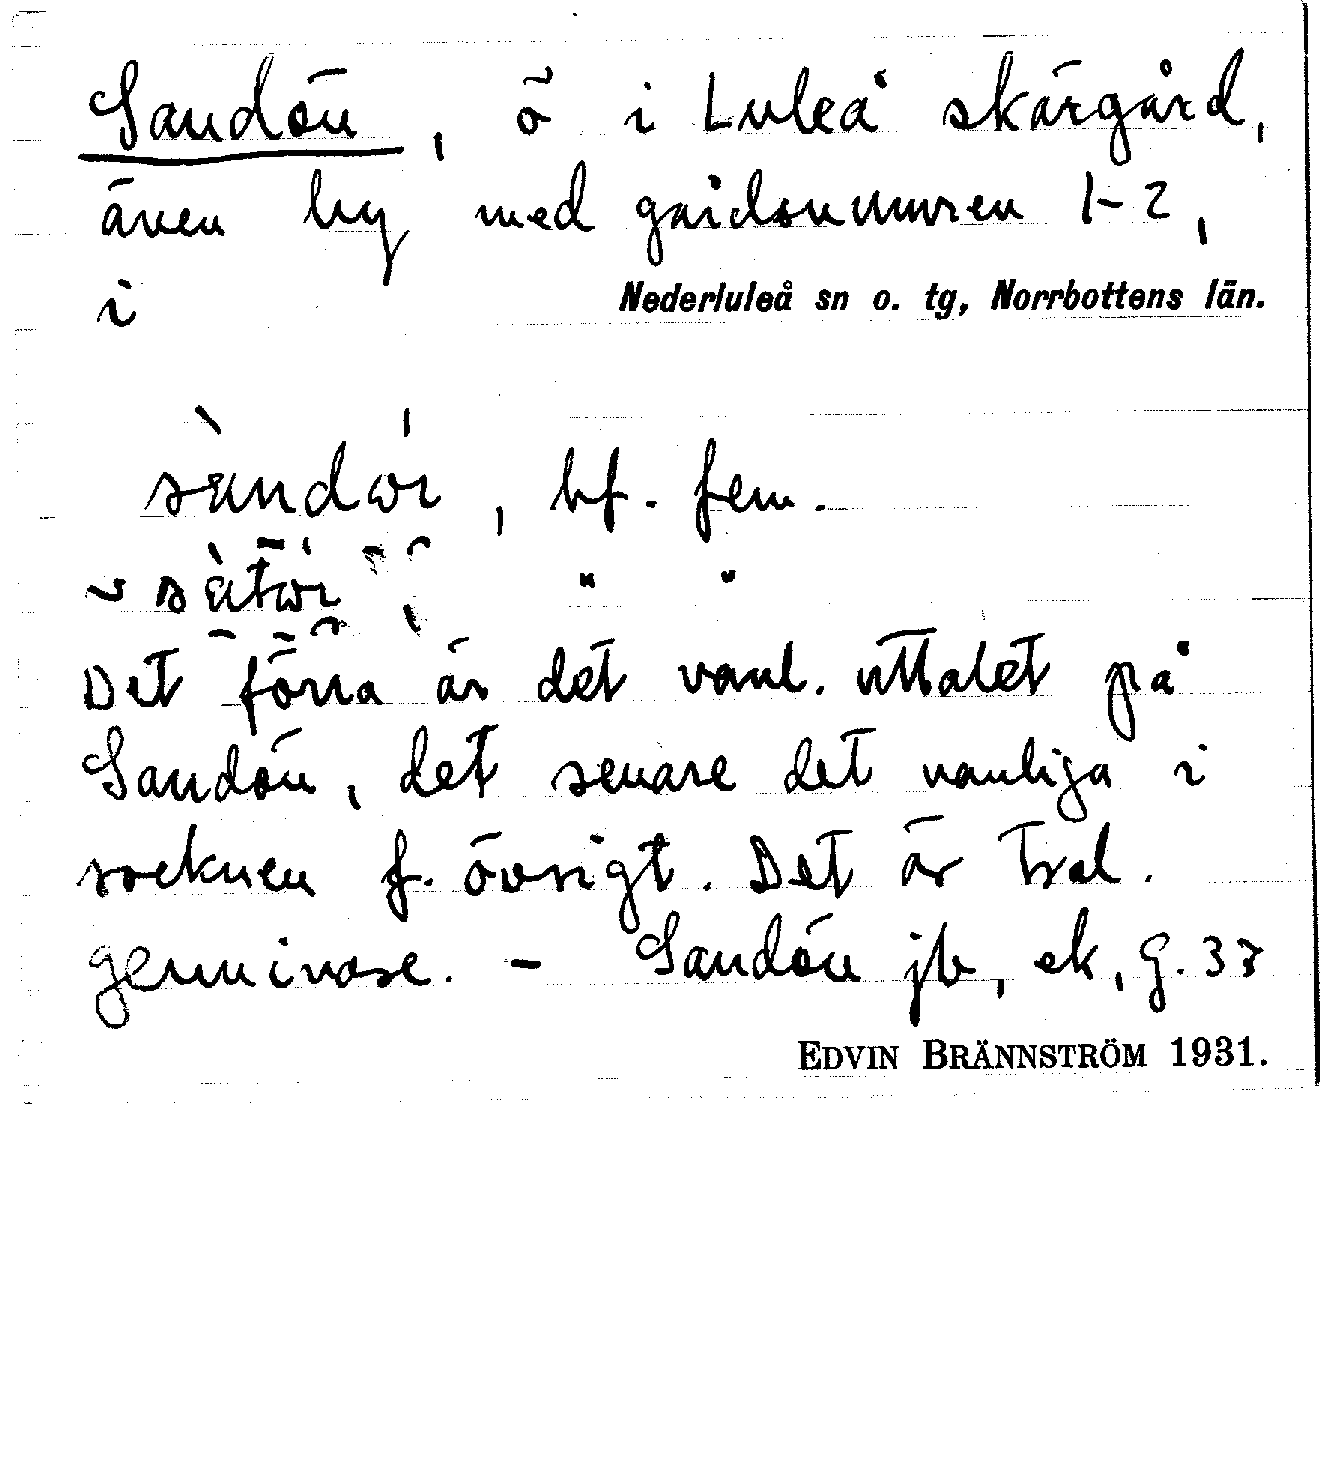 Sandön, ö i Luleå skärgård,
även by med gårdsnumren 1-2,
i Nederluleå sn o. tg, Norrbottens län.
bf. fem.
" "
Det förra är det vanl. uttalet på
Sandön, det senare det vanliga i
socknen f. övrigt. Det är
Sandön jb, ek, G. 37
EDVIN BRÄNNSTRÖM 1931.